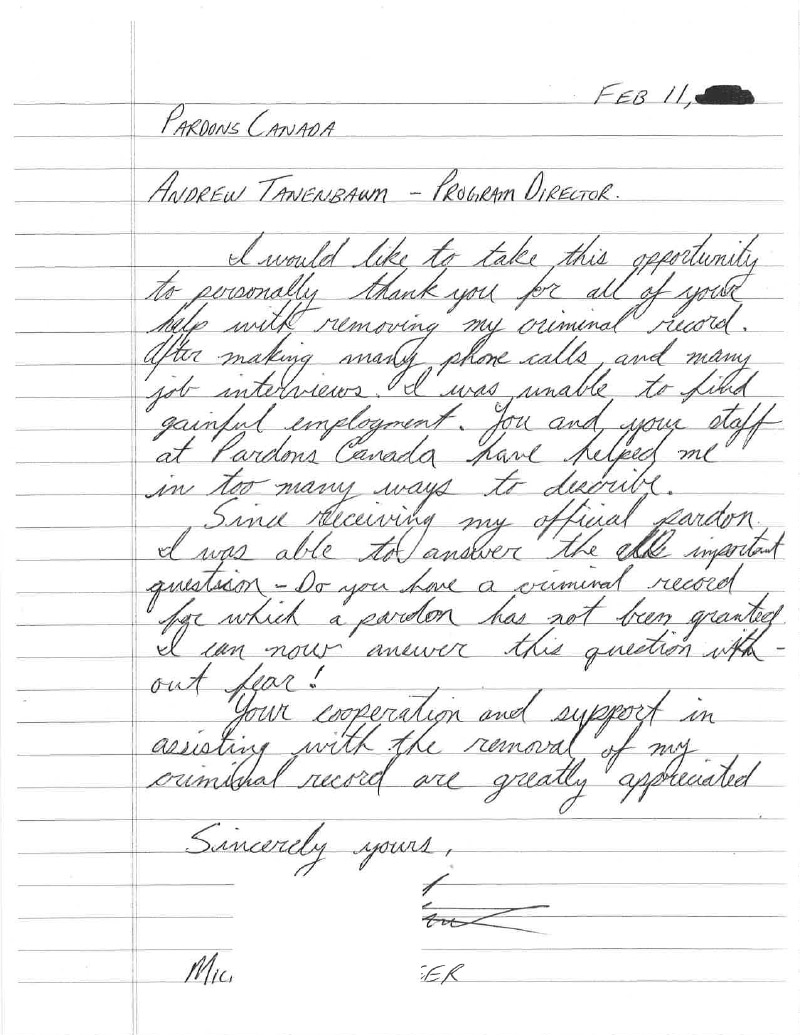 FEB 11,
PARDONS CANADA
ANDREW TANENBAUM - PROGRAM DIRECTOR.
I would like to take this opportunity
to personally thank you for all of your
help with removing my criminal record.
After making many phone calls and many
job interviews. I was unable to find
gainful employment. You and your staff
at Pardons Canada have helped me
in too many ways to describe.
Since receiving my official pardon
I was able to answer the important
question - Do you have a criminal record
for which a pardon has not been granted
I can now answer this question with-
out fear!
Your cooperation and support in
assisting with the removal of my
criminal record are greatly appreciated
Sincerely yours,
MIC
ER